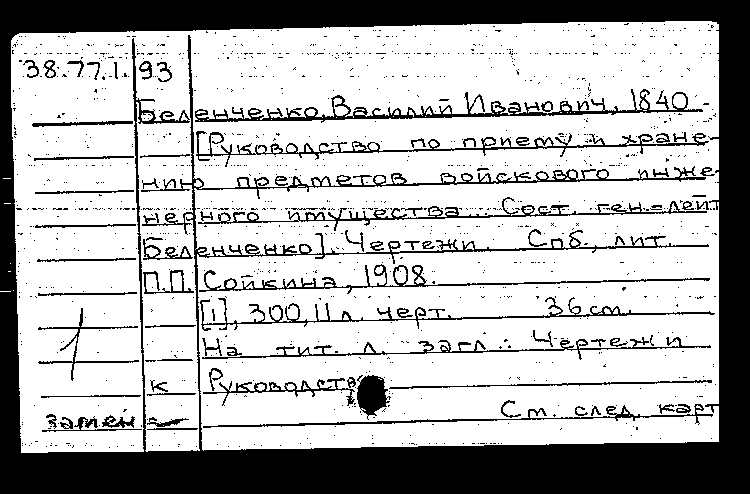 38.77.1.93
Беленченко, Василий Иванович, 1840 -
[Руководство по приему и хране-
нию предметов войскового инже-
нерного имущества. Сост. ген.-лейт
Беленченко]. Чертежи. Спб., лит.
П.П. Сойкина, 1908.
[1], 300, 11 л. черт. 36 см.
На тит. л. загл.: Чертежи
1
к Руководств
замен
См. след. карт